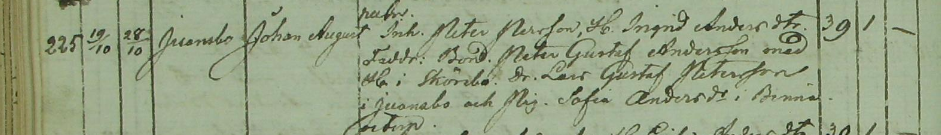 225 19/10 28/10 Juanabo Johan August Inh. Peter Persson, H. Ingrid Andersdtr. 39 1 —
Faddr: Bond. Peter Gustaf Andersson med
H. i Skörebo. Dr. Lars Gustaf Petersson
i Juanabo och Pig. Sofia Andersdr i